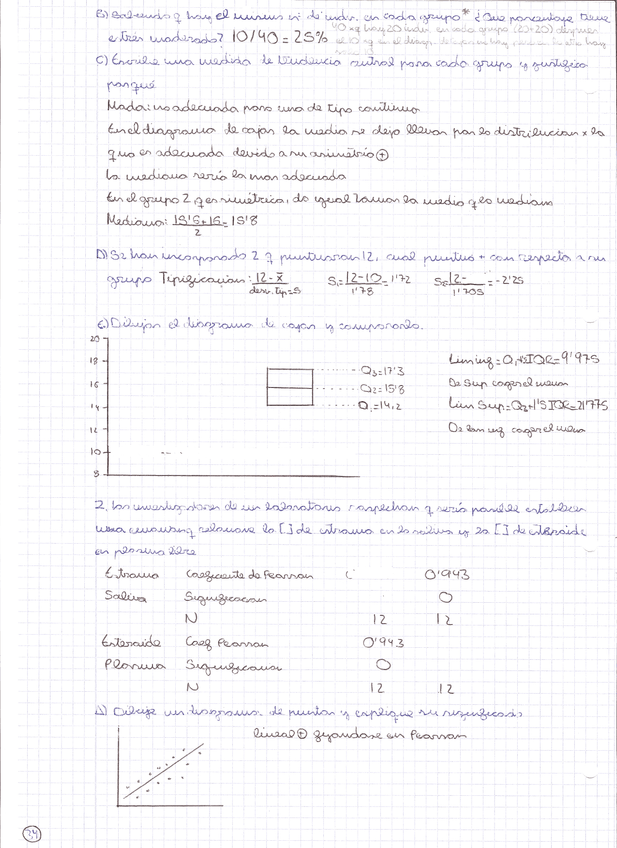 B) Sabiendo q hay el mismo nº de indiv. en cada grupo * ¿Que porcentaje tiene
estrés moderado? 10/40 = 25%
40 xq hay 20 indiv en cada grupo (20+20)
C) Escribe una medida de tendencia central para cada grupo y justifica
porqué
Moda: no adecuada para una de tipo continuo
En el diagrama de cajas la media se deja llevar por la distribucion x lo
que es adecuada devido a su asimetría ⊕
La mediana sería la mas adecuada
En el grupo 2, q es simétrica, da igual tomar la media q la mediana
Mediana: 15'5+16/2 = 15'8
D) Se han incorporado 2 q puntuaran 12, cual puntua + con respecto a su
grupo Tipificación: 12-x̄/desv.tip=S S₁= 12-10/1'78 = 1'72 S₂= 12-/1'705 = -2'25
E) Dibujar el diagrama de cajas y componerlo.
20
18
16
14
12
10
8
Q₃=17'3
Q₂=15'8
Q₁=14,2
Lim inf = Q₁ IQR = 9'975
De sup coger el menor
Lim Sup = Q₃+1'5 IQR = 21'775
De lim inf coger el
2. Los investigadores de un laboratorio sospechan q sería posible establecer
una relacione la [ ] de en la saliva y la [ ] de esteroide
en plasma libre
Coeficiente de Pearson 0'943
Saliva Significacion 0
N 12 12
Esteroide Coef Pearson 0'943
Plasma Significacion 0
N 12 12
A) Dibuje un diagrama de puntos y explique su significado
lineal ⊕ fijandose en Pearson
34